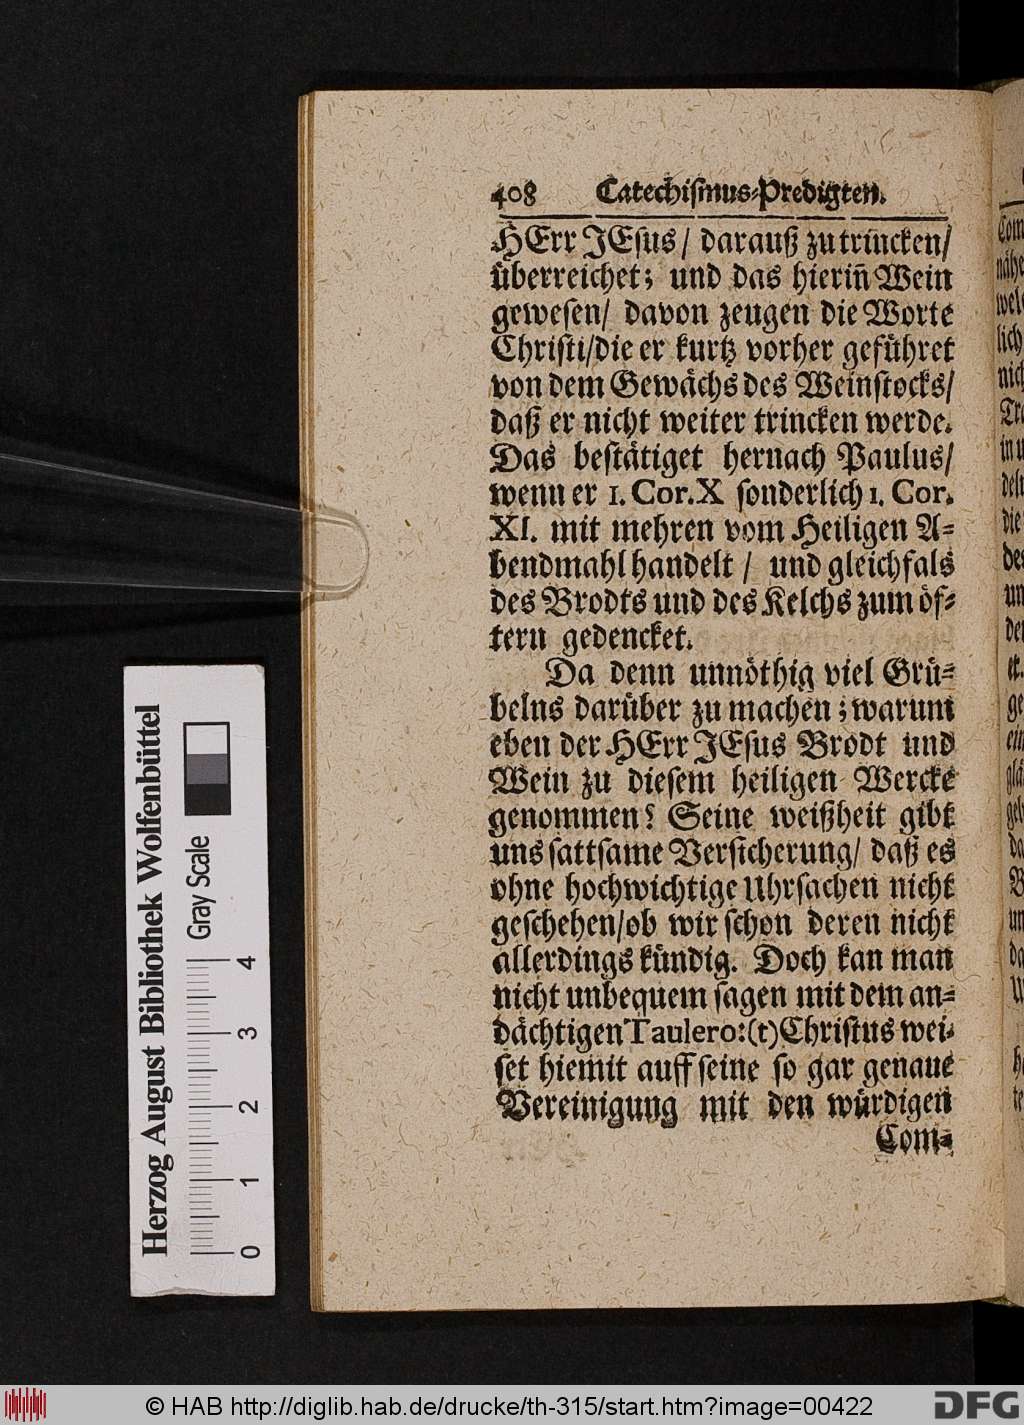 408 Catechismus-Predigten.
HErr JEsus / darauß zu trincken /
überreichet; und das hieriñ Wein
gewesen / davon zeugen die Worte
Christi / die er kurtz vorher geführet
von dem Gewächs des Weinstocks /
daß er nicht weiter trincken werde.
Das bestätiget hernach Paulus /
wenn er 1. Cor. X sonderlich 1. Cor.
XI. mit mehren vom Heiligen A-
bendmahl handelt / und gleichfals
des Brodts und des Kelchs zum öf-
tern gedencket.
Da denn unnöthig viel Grü-
belns darüber zu machen; warum
eben der HErr JEsus Brodt und
Wein zu diesem heiligen Wercke
genommen? Seine weißheit gibt
uns sattsame Versicherung / daß es
ohne hochwichtige Uhrsachen nicht
geschehen / ob wir schon deren nicht
allerdings kündig. Doch kan man
nicht unbequem sagen mit dem an-
dächtigen Taulero: (t) Christus wei-
set hiemit auff seine so gar genaue
Vereinigung mit den würdigen
Com-
Herzog August Bibliothek Wolfenbüttel
Gray Scale
0 1 2 3 4
© HAB http://diglib.hab.de/drucke/th-315/start.htm?image=00422
DFG